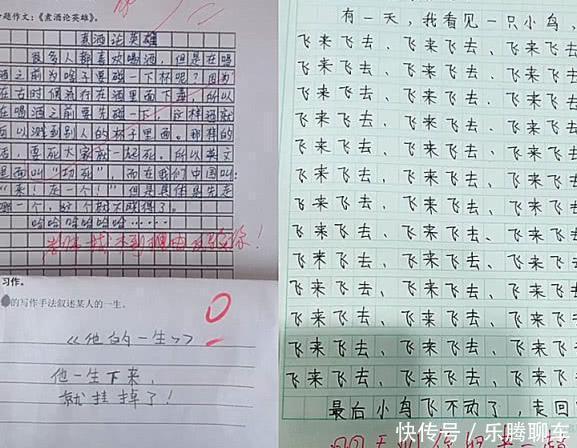 题作文:《煮酒论英雄》。
煮酒论英雄
很多人都喜欢喝酒,但是在喝
酒之前为啥子要碰一下杯呢?因为
在古时候流行在酒里面下毒,所以
在喝酒之前要先碰一下,这样酒就
可以溅到别人的杯子里面。那样的
话,要死大家就一起死。所以英文
里面叫"切死",而在我们中国叫:
"来!走一个!"但是具体是先走
哪一个,
哈哈哈哈哈哈……
习作。
的写作手法叙述某人的一生。
《他的一生》
他一生下来,
就挂掉了!
0
有一天,我看见一只小鸟,
飞来飞去、飞来飞去、飞来飞去、
飞来飞去、飞来飞去、飞来飞去、
飞来飞去、飞来飞去、飞来飞去、
飞来飞去、飞来飞去、飞来飞去、
飞来飞去、飞来飞去、飞来飞去、
飞来飞去、飞来飞去、飞来飞去、
飞来飞去、飞来飞去、飞来飞去、
飞来飞去、飞来飞去、飞来飞去、
飞来飞去、飞来飞去、飞来飞去、
飞来飞去、飞来飞去、飞来飞去、
飞来飞去、飞来飞去、飞来飞去、
飞来飞去、飞来飞去、飞来飞去、
飞来飞去、飞来飞去、飞来飞去、
最后小鸟飞不动了,走回
快传号/乐腾聊车